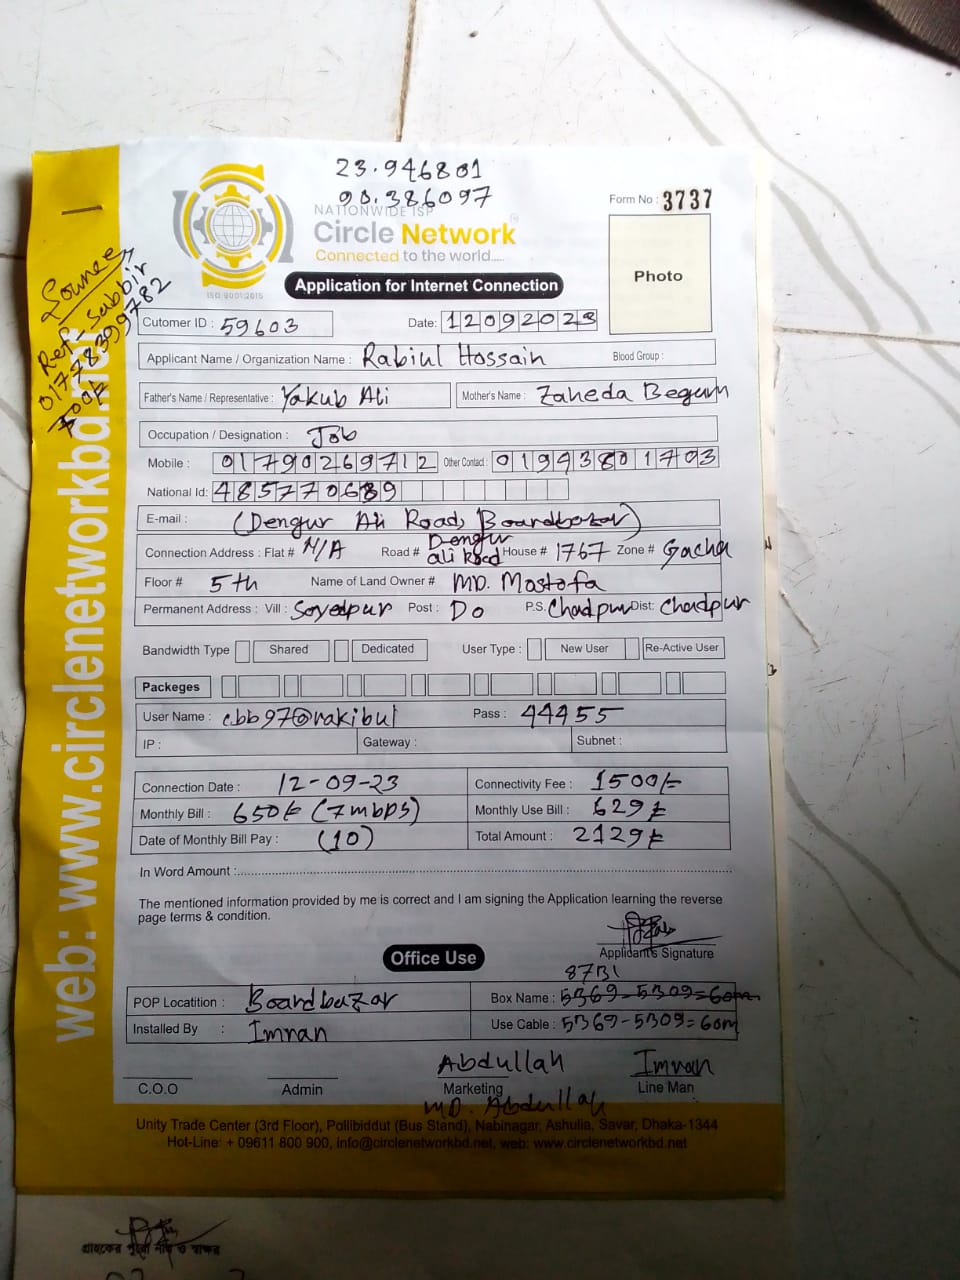 23.946801
90.386097
NATIONWIDE ISP
Circle Network
Connected to the world.....
ISO 9001:2015
Form No : 3737
Photo
Application for Internet Connection
Ref- Sabbir
01778399782
Cutomer ID : 59603 Date: 12092023
Applicant Name / Organization Name : Rabiul Hossain Blood Group :
Father's Name / Representative : Yakub Ali Mother's Name : Zaheda Begum
Occupation / Designation : Job
Mobile : 01790269712 Other Contact : 01943801703
National Id: 4857706
E-mail : (Dengur Ali Road, Boardbazar)
Connection Address : Flat # N/A Road # Dengur ali Road House # 1767 Zone # Gacha
Floor # 5th Name of Land Owner # MD. Mostofa
Permanent Address : Vill : Soyedpur Post : Do P.S. Chadpur Dist: Chadpur
Bandwidth Type Shared Dedicated User Type : New User Re-Active User
Packeges
User Name : cbb97@rakibul Pass : 44455
IP : Gateway : Subnet :
Connection Date : 12-09-23 Connectivity Fee : 1500/-
Monthly Bill : 650/- (7mbps) Monthly Use Bill : 629/-
Date of Monthly Bill Pay : (10) Total Amount : 2129/-
In Word Amount :
The mentioned information provided by me is correct and I am signing the Application learning the reverse
page terms & condition.
Applicant's Signature
Office Use
POP Locatition : Boardbazar Box Name : 5369-5309=60m
Installed By : Imran Use Cable : 5369-5309=60m
Abdullah Imran
C.O.O Admin Marketing Line Man
MD. Abdullah
Unity Trade Center (3rd Floor), Pollibiddut (Bus Stand), Nabinagar, Ashulia, Savar, Dhaka-1344
Hot-Line: + 09611 800 900, info@circlenetworkbd.net, web: www.circlenetworkbd.net
web: www.circlenetworkbd.net